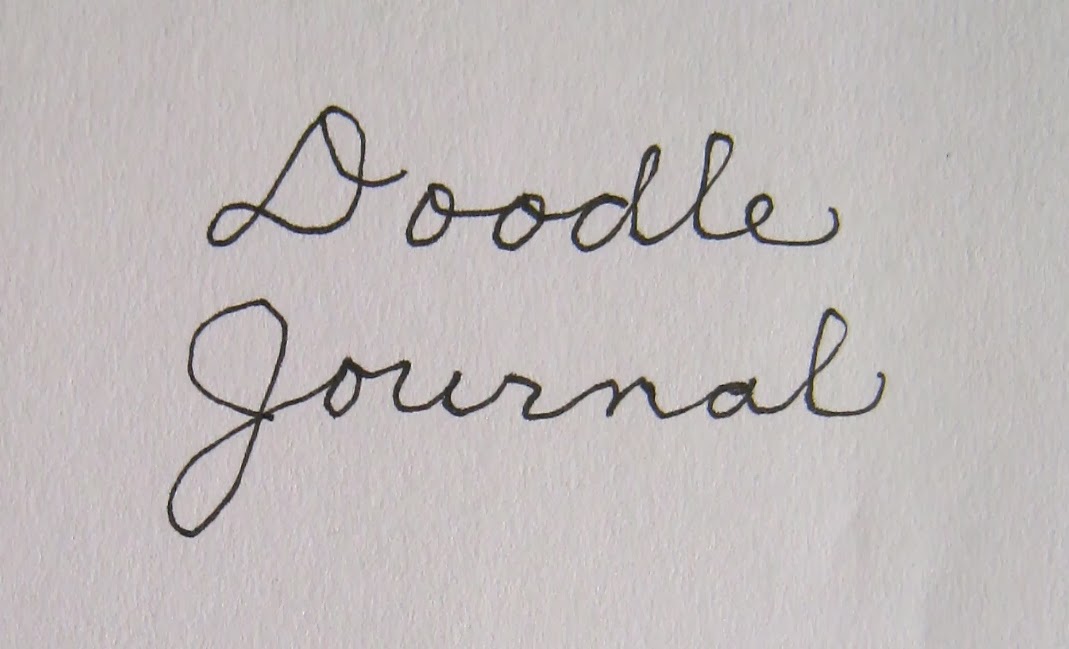 Doodle
Journal